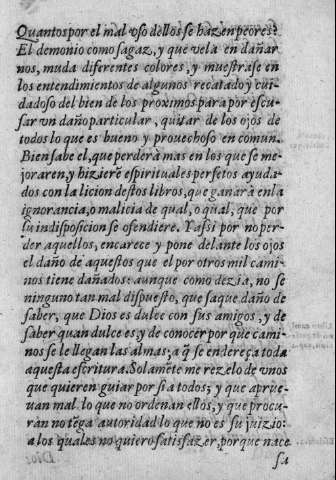 Quantos por el mal vso dellos se hazen peores?
El demonio como sagaz, y que vela en dañar
nos, muda diferentes colores, y muestrase en
los entendimientos de algunos recatado y cui-
dadoso del bien de los proximos para por escu-
sar vn daño particular, quitar de los ojos de
todos lo que es bueno y prouechoso en comun.
Bien sabe el, que perderà mas en los que se me-
joraren, y hizierē espirituales perfetos ayuda-
dos con la licion destos libros, que ganarà en la
ignorancia, o malicia de qual, o qual, que por
su indisposicion se ofendiere. Y assi por no per-
der aquellos, encarece y pone delante los ojos
el daño de aquestos que el por otros mil cami
nos tiene dañados: aunque como dezia, no se
ninguno tan mal dispuesto, que saque daño de
saber, que Dios es dulce con sus amigos, y de
saber quan dulce es; y de conocer por que cami-
nos se le llegan las almas, a q̄ se endereça toda
aquesta escritura. Solamēte me rezelo de vnos
que quieren guiar por si a todos; y que aprue-
uan mal lo que no ordenan ellos, y que procu-
ran no tēga autoridad lo que no es su juizio:
a los quales no quiero satisfazer, porque nace
su